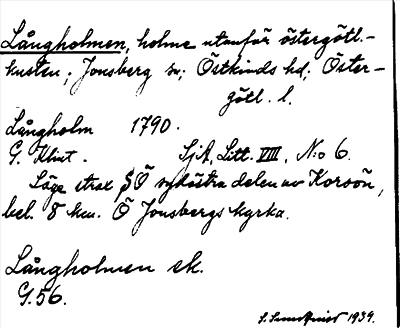 Långholmen, holme utanför östergötl.-
kusten; Jonsberg sn; Östkinds hd; Öster-
götl. l.
Långholm 1790.
G. Klint. SjA, Litt. VIII, N:o 6.
Läge strax SÖ sydöstra delen av Korsön,
bel. 8 km. Ö Jonsbergs kyrka.
Långholmen ek.
G.56.
S. Sundqvist 1939.